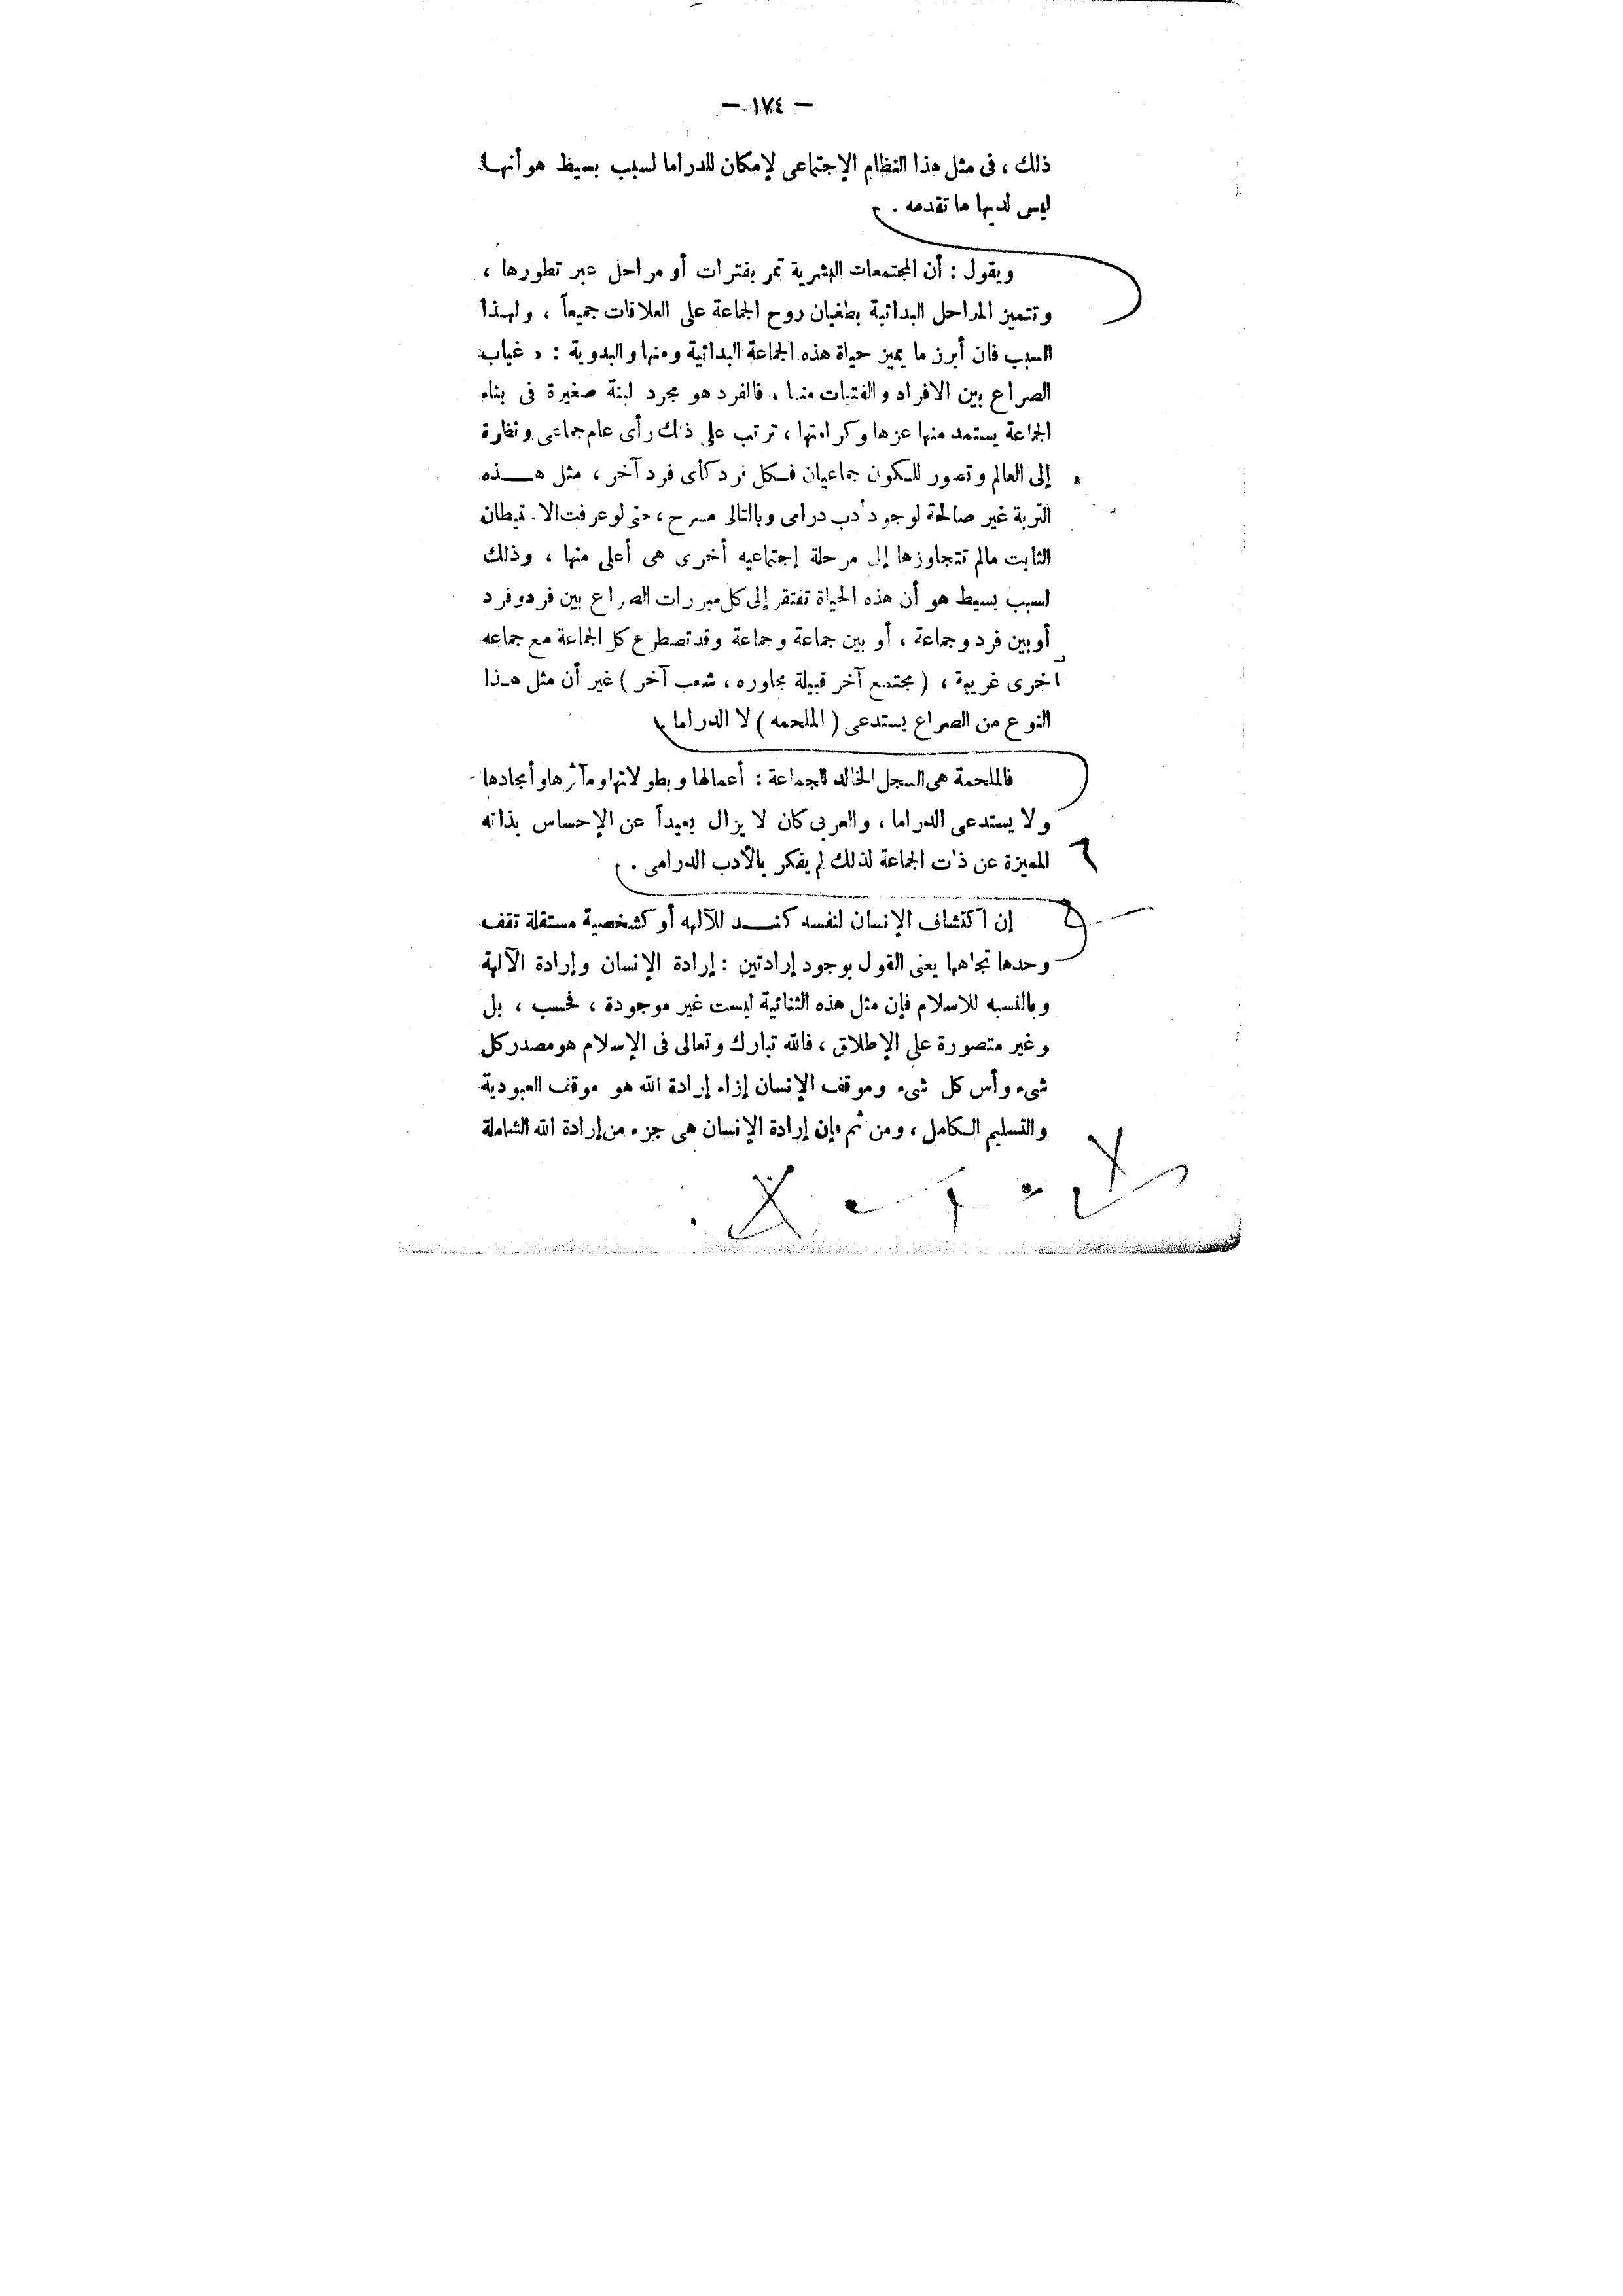 — ١٧٤ —
ذلك ، فى مثل هذا النظام الإجتماعى لإمكان للدراما لسبب بسيط هو أنها
ليس لديها ما تقدمه .
ويقول : أن المجتمعات البشرية تمر بفترات أو مراحل عبر تطورها ،
وتتميز المراحل البدائية بطغيان روح الجماعة على العلاقات جميعاً ، ولهذا
السبب فان أبرز ما يميز حياة هذه الجماعة البدائية ومنها والبدوية : « غياب
الصراع بين الافراد والفتيات منها ، فالفرد هو مجرد لبنة صغيرة فى بناء
الجماعة يستمد منها عزها وكرامتها ، ترتب على ذلك رأى عام جماعى ونظرة
إلى العالم وتصور للكون جماعيان فكل فرد كأى فرد آخر ، مثل هذه
التربة غير صالحة لوجود أدب درامى وبالتالى مسرح ، حتى لو عرفت الاستيطان
الثابت مالم تتجاوزها إلى مرحلة إجتماعيه أخرى هى أعلى منها ، وذلك
لسبب بسيط هو أن هذه الحياة تفتقر إلى كل مبررات الصراع بين فرد وفرد
أو بين فرد وجماعة ، أو بين جماعة وجماعة وقد تصطرع كل الجماعة مع جماعه
أخرى غريبة ، ( مجتمع آخر قبيلة مجاوره ، شعب آخر ) غير أن مثل هذا
النوع من الصراع يستدعى ( الملحمه ) لا الدراما
فالملحمة هى السجل الخالد للجماعة : أعمالها وبطولاتها ومآثرها وأمجادها
ولا يستدعى الدراما ، والعربى كان لا يزال بعيداً عن الإحساس بذاته
المميزة عن ذات الجماعة لذلك لم يفكر بالأدب الدرامى .
إن اكتشاف الإنسان لنفسه كند للآلهه أو كشخصية مستقلة تقف
وحدها تجاهها يعنى القول بوجود إرادتين : إرادة الإنسان وإرادة الآلهة
وبالنسبه للاسلام فإن مثل هذه الثنائية ليست غير موجودة ، فحسب ، بل
وغير متصورة على الإطلاق ، فالله تبارك وتعالى فى الإسلام هو مصدر كل
شىء وأس كل شىء وموقف الإنسان إزاء إرادة الله هو موقف العبودية
والتسليم الكامل ، ومن ثم فإن إرادة الإنسان هى جزء من إرادة الله الشاملة